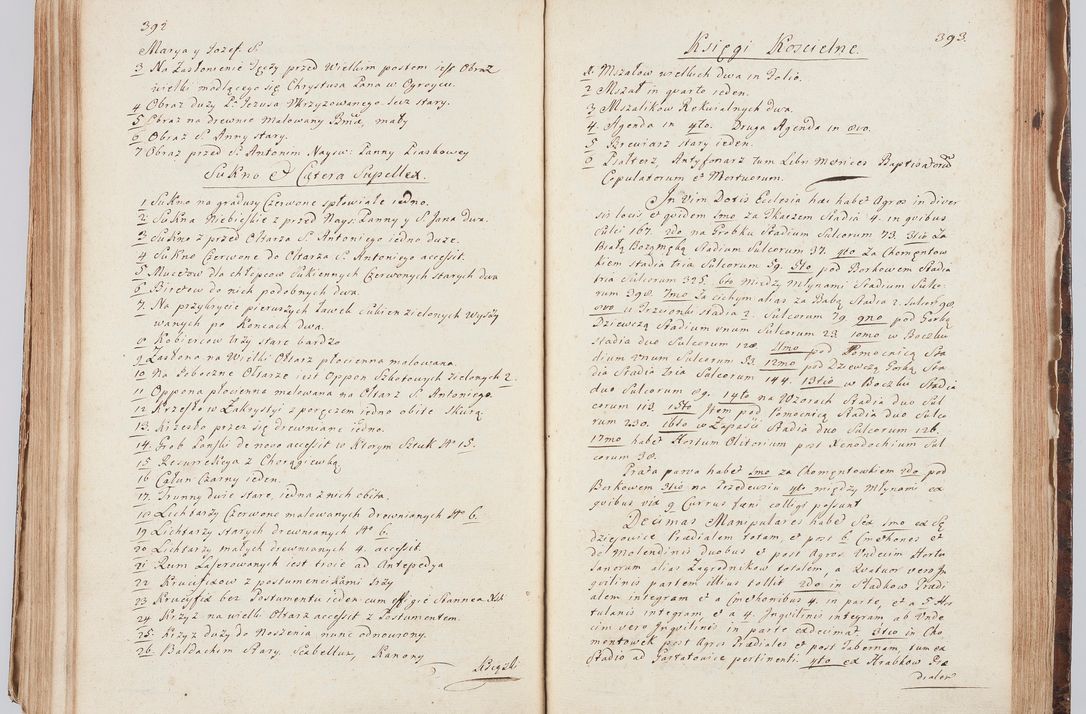 392
Marya y Jozef. S.
3 Na Zasłonienie Tęczy przed Wielkim postem jest Obraz
wielki modlącego się Chrystusa Pana w Ogroycu.
4 Obraz duży P. Jezusa Ukrzyżowanego lecz stary.
5 Obraz na drewnie malowany Bmæ, mały
6 Obraz S. Anny stary.
7 Obraz przed S. Antonim Nayśw: Panny Piaskowey
Sukno & Cætera Supellex.
1 Sukno na gradusy Czerwone spłowiałe iedno.
2. Sukna Niebieskie z przed Nayś: Panny y S. Jana dwa.
3 Sukno z przed Ołtarza S. Antoniego iedno duże.
4 Sukno Czerwone do Ołtarza S. Antoniego accessit.
5 Mucetów dla chłopców Sukiennych Czerwonych starych dwa
6 Biretów do nich podobnych dwa.
7. Na przykrycie pierwszych Ławek Sukien zielonych Wyszy
wanych po Koncach dwa.
8 Kobierców trzy stare bardzo
9 Zasłona na Wielki Ołtarz płocienna malowana.
10 Na Poboczne Ołtarze iest Oppon Szkotowych zielonych 2.
11 Oppona płocienna malowana na Ołtarz S. Antoniego.
12 Krzesło w Zakrystyi z poręczem iedno obite Skurą
13. Krzesło przez się drewniane iedno.
14. Grob Pański de novo accessit w Ktorym Sztuk No 15.
15 Resurrekcya z Chorągiewką
16 Całun Czarny ieden.
17. Trunny dwie stare, iedna z nich obita.
18 Lichtarzy Czerwono malowanych drewnianych No 6.
19 Lichtarzy starych drewnianych No 6.
20 Lichtarzy małych drewnianych 4. accessit.
21 Ram Laserowanych iest troie ad Antepedya
22 Krucyfixow z postumencikami trzy
23 Krucyfix bez Postumentu ieden cum effigie Stannea
24 Krzyż na wielki Ołtarz accessit z Postumentem.
25. Krzyż duży do Noszenia nunc odnowiony.
26. Baldachim Stary, Scabellum, Kanony
Księgi
393.
Księgi Koscielne.
1. Mszałow wielkich dwa in Folio.
2 Mszał in quarto ieden.
3 Mszalikow Rekwialnych dwa.
4. Agenda in 4to. Druga Agenda in 8vo.
5 Brewiarz stary ieden.
6 Psalterz, Antyfonarz tum Libri Metrices Baptisatorum
Copulatorum et Mortuorum.
In Vim Dotis Ecclesia hæc habet Agros in diver
sis locis et quidem 1mo za Tkaczem Stadia 4. in quibus
Sulci 167. 2do na Grobku Stadium Sulcorum 73. 3tio Za
Białą Bożymęką Stadium Sulcorum 37. 4to Za Chomentow
kiem stadia tria Sulcorum 59. 5to pod Borkowem Stadia
tria Sulcorum 325. 6to Między Młynami Stadium Sulco-
rum 398. 7mo Za cichym alias za Babą Stadia 2. Sulcor: 98
8vo u Trzwonki stadia 2. Sulcorum 79. 9no pod Gorką
Dziewczą Stadium unum Sulcorum 23. 10mo w Boczku
stadia duo Sulcorum 128. 11mo pod Pomocnicą Sta
dium Unum Sulcorum 53. 12mo pod Dziewczą Gorką Sta
dia Stadia tria Sulcorum 144. 13tio w Boczku Stadia
duo Sulcorum 89. 14to na Wzorach Stadia duo Sul
corum 113. 15to Item pod Pomocnicą Stadia duo Sulco
rum 230. 16to w Zapaści Stadia duo Sulcorum 126.
17mo habet Hortum Olitorium post Xenodochium Sul
corum 38.
Prata parva habet 1mo za Chomentowkiem 2do pod
Borkowem 3tio na Przedewsiu 4to między Młynami ex
quibus vix 9. Currus fæni colligi possunt
Decimas Manipulares habet Sex 1mo ex Sę
dziejowice Prædialem totam, et post 6. Cmethones et
de Molendinis duobus et post Agros Undecim Horto
lanorum alias Zagrodnikow totalem, a Quatuor vero In
quilinis partem illius tollit 2do in Sladkow Prædi
alem integram et a Cmethonibus 4. in parte, et a 5 Hor
tulanis integram, et a 4. Inquilinis integram ab Unde
cim vero Inquilinis in parte exdecimat 3tio in Cho
mentowek post Agros Prædiales et post Tabernam, tum ex
Stadio ad Gartatowice pertinenti 4to ex Hrabkow Præ
dialem